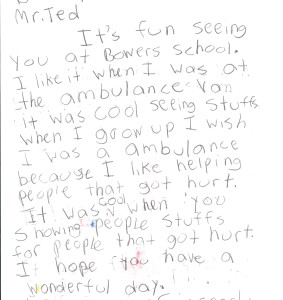 Mr.Ted
It's fun seeing
you at Bowers school.
I like it when I was at
the ambulance van
it was cool seeing stuffs
when I grow up I wish
I was a ambulance
because I like helping
people that got hurt.
It was cool when you
showing people stuffs
for people that got hurt.
I hope you have a
wonderful day.